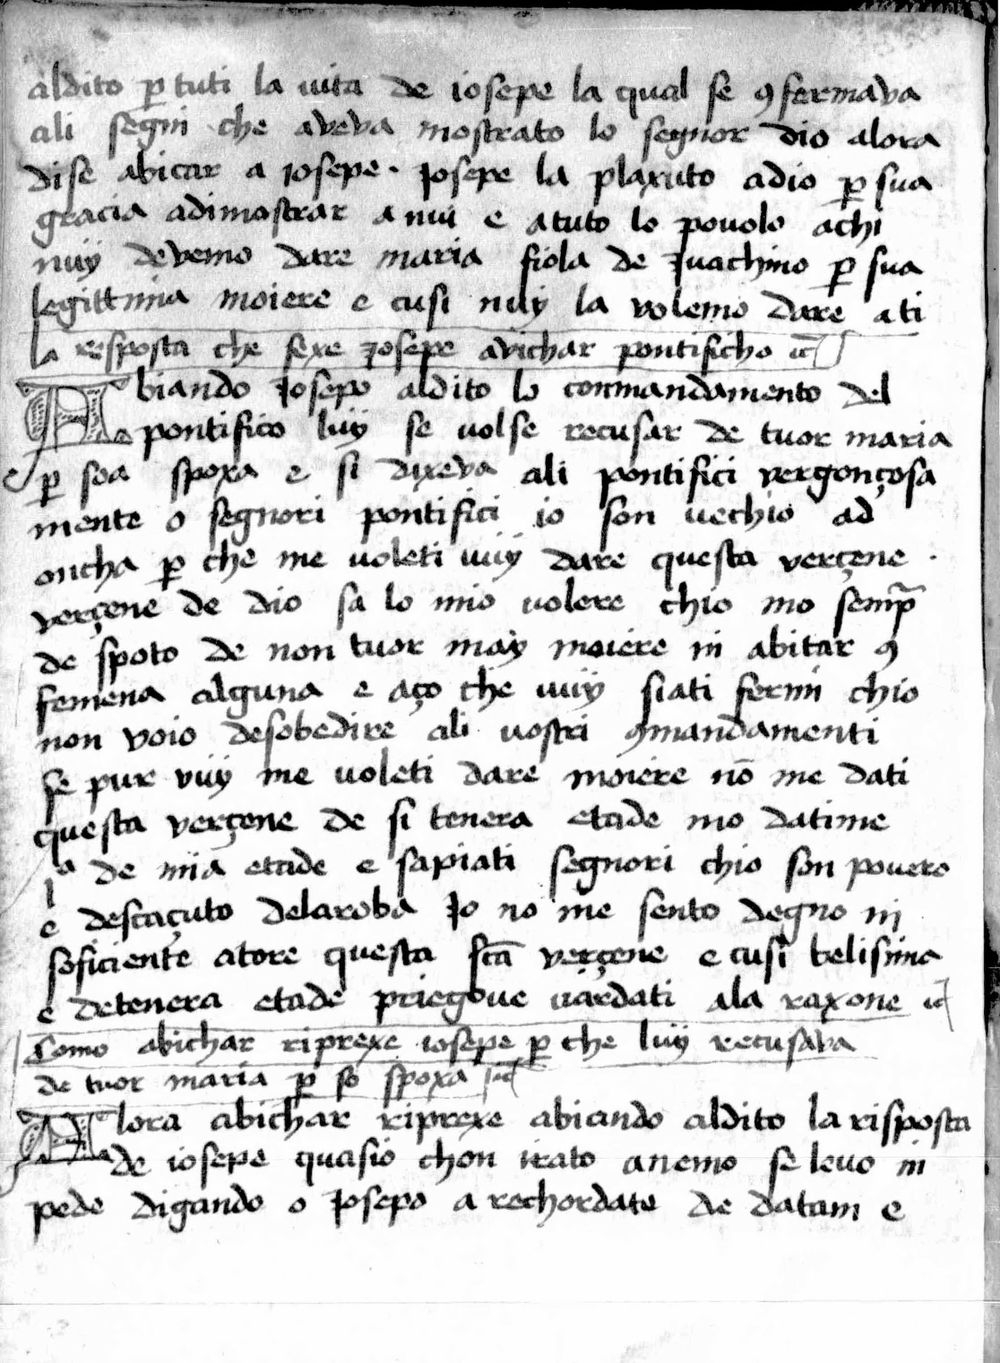 aldito ꝑ tuti la uita de iosepe la qual se ꝯfermava
ali segni che aveva mostrato lo segnor dio alora
dise abicar a iosepe · Josepe la plaxuto adio ꝑ sua
gracia adimostrar a nui e atuto lo pouolo achi
nuÿ devemo dare maria fiola de Juachino ꝑ sua
legittima moiere e cusi nuÿ la volemo dare ati
La resposta che fexe Josepe avichar pontificho
Abiando Josepo aldito lo conmandamento del
pontifico luÿ se uolse recusar de tuor maria
e ꝑ soa spoxa e si dixeva ali pontifici vergonçosa
mente o segnori pontifici io son uechio ad
oncha ꝑ che me uoleti uuÿ dare questa verçene ·
verçene de dio sa lo mio uolere chio mo semp̄
de spoto de non tuor maÿ moiere ni abitar ꝯ
femena alguna e aço che uuÿ siati fermi chio
non voio desobedire ali uostri ꝯmandamenti
se pur vuÿ me uoleti dare moiere nō me dati
questa verçene de si tenera etade mo datime
la de mia etade e sapiati segnori chio son pouero
e descaçuto delaroba Jo no me sento degno ni
soficiente atore questa sc̄a verçene e cusi belisima
e detenera etade priegoue uardati ala raxone
Como abichar riprexe iosepe ꝑ che luÿ recusava
de tuor maria ꝑ so spoxa
Alora abichar riprexe abiando aldito la risposta
de iosepe quasio chon irato anemo se leuo in
pede digando o Josepo a rechordate de datam e